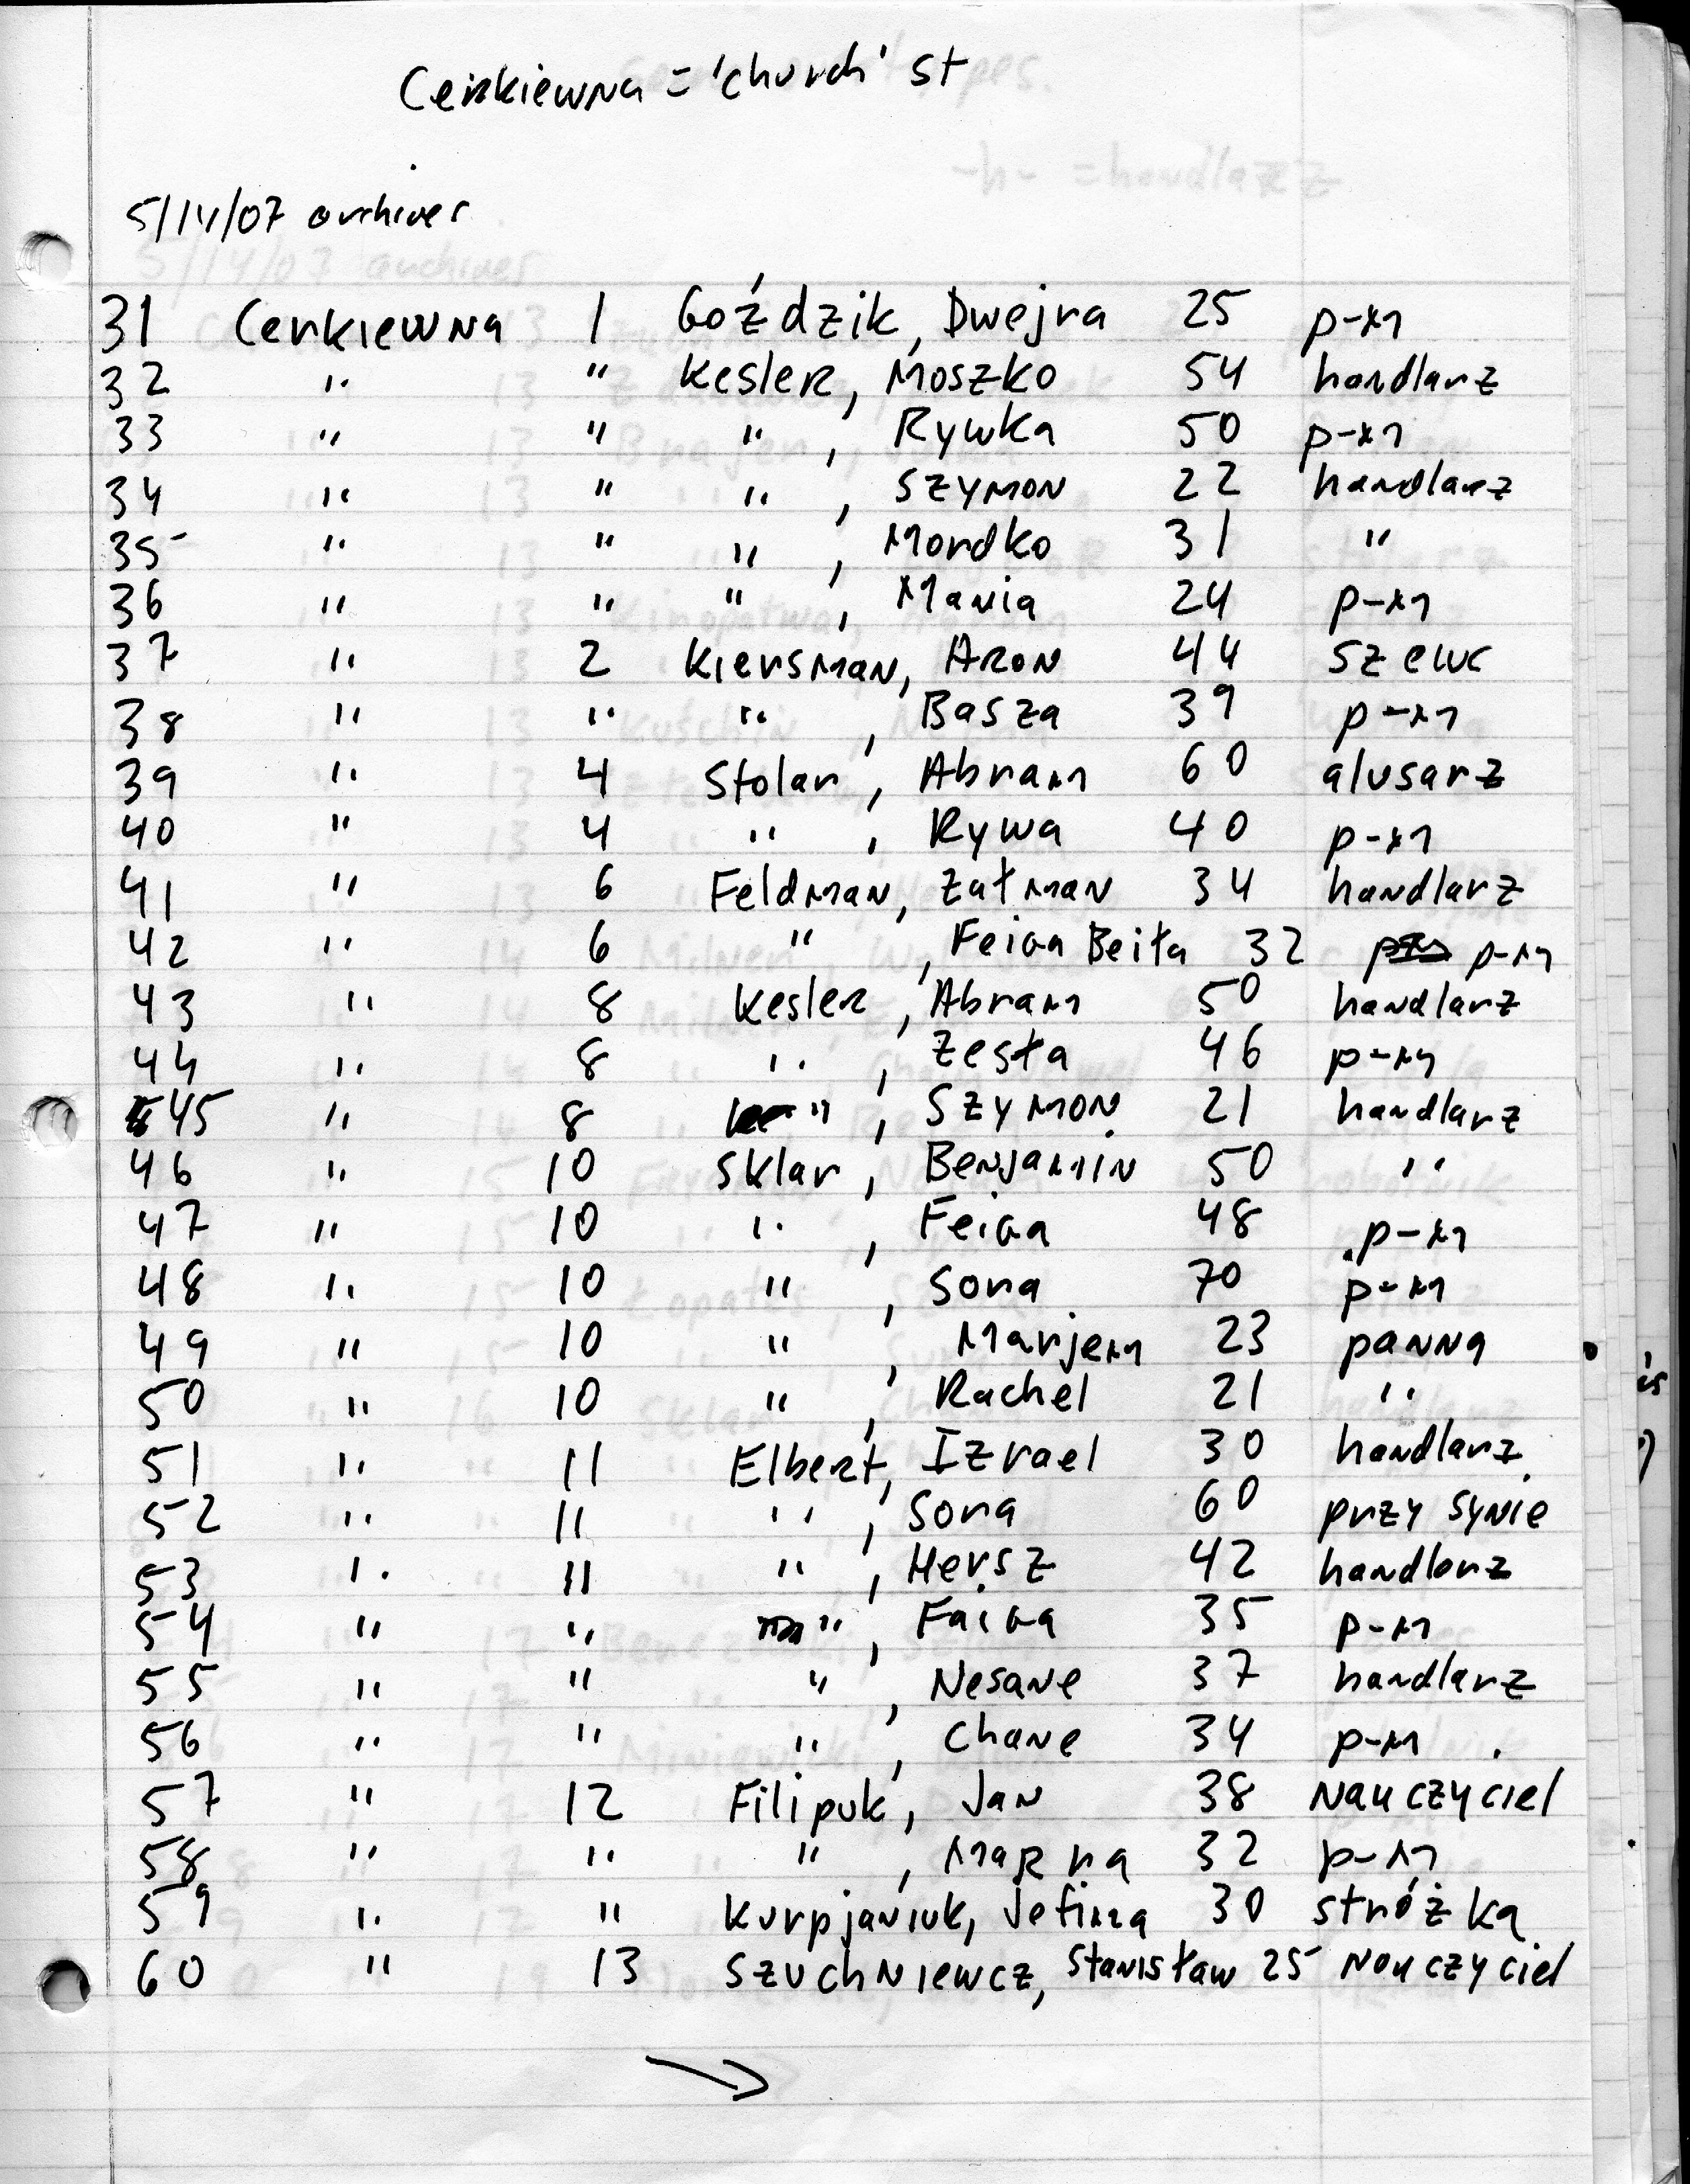 Cerkiewna = 'church' st
5/14/07 archives
31 Cerkiewna 1 Goździk, Dwejra 25 p-m
32 " " Kesler, Moszko 54 handlarz
33 " " " , Rywka 50 p-m
34 " " " , Szymon 22 handlarz
35 " " " , Mordko 31 "
36 " " " , Mania 24 p-m
37 " 2 Kiersman, Aron 44 szewc
38 " " " , Basza 39 p-m
39 " 4 Stolar, Abram 60 alusarz
40 " 4 " , Rywa 40 p-m
41 " 6 Feldman, Załman 34 handlarz
42 " 6 " , Feiga Beiła 32 p-m
43 " 8 Kesler, Abram 50 handlarz
44 " 8 " , Zesła 46 p-m
45 " 8 " , Szymon 21 handlarz
46 " 10 Sklar, Benjamin 50 "
47 " 10 " , Feiga 48 p-m
48 " 10 " , Sora 70 p-m
49 " 10 " , Marjem 23 panna
50 " 10 " , Rachel 21 "
51 " 11 Elbert, Izrael 30 handlarz
52 " 11 " , Sora 60 przy synie
53 " 11 " , Hersz 42 handlarz
54 " " " , Faiga 35 p-m
55 " " " , Nesane 37 handlarz
56 " " " , Chane 34 p-m
57 " 12 Filipuk, Jan 38 nauczyciel
58 " " " , 32 p-m
59 " " Kurpjaniuk, Jefima 30 stróżka
60 " 13 Szuchniewcz, Stanisław 25 nauczyciel
→